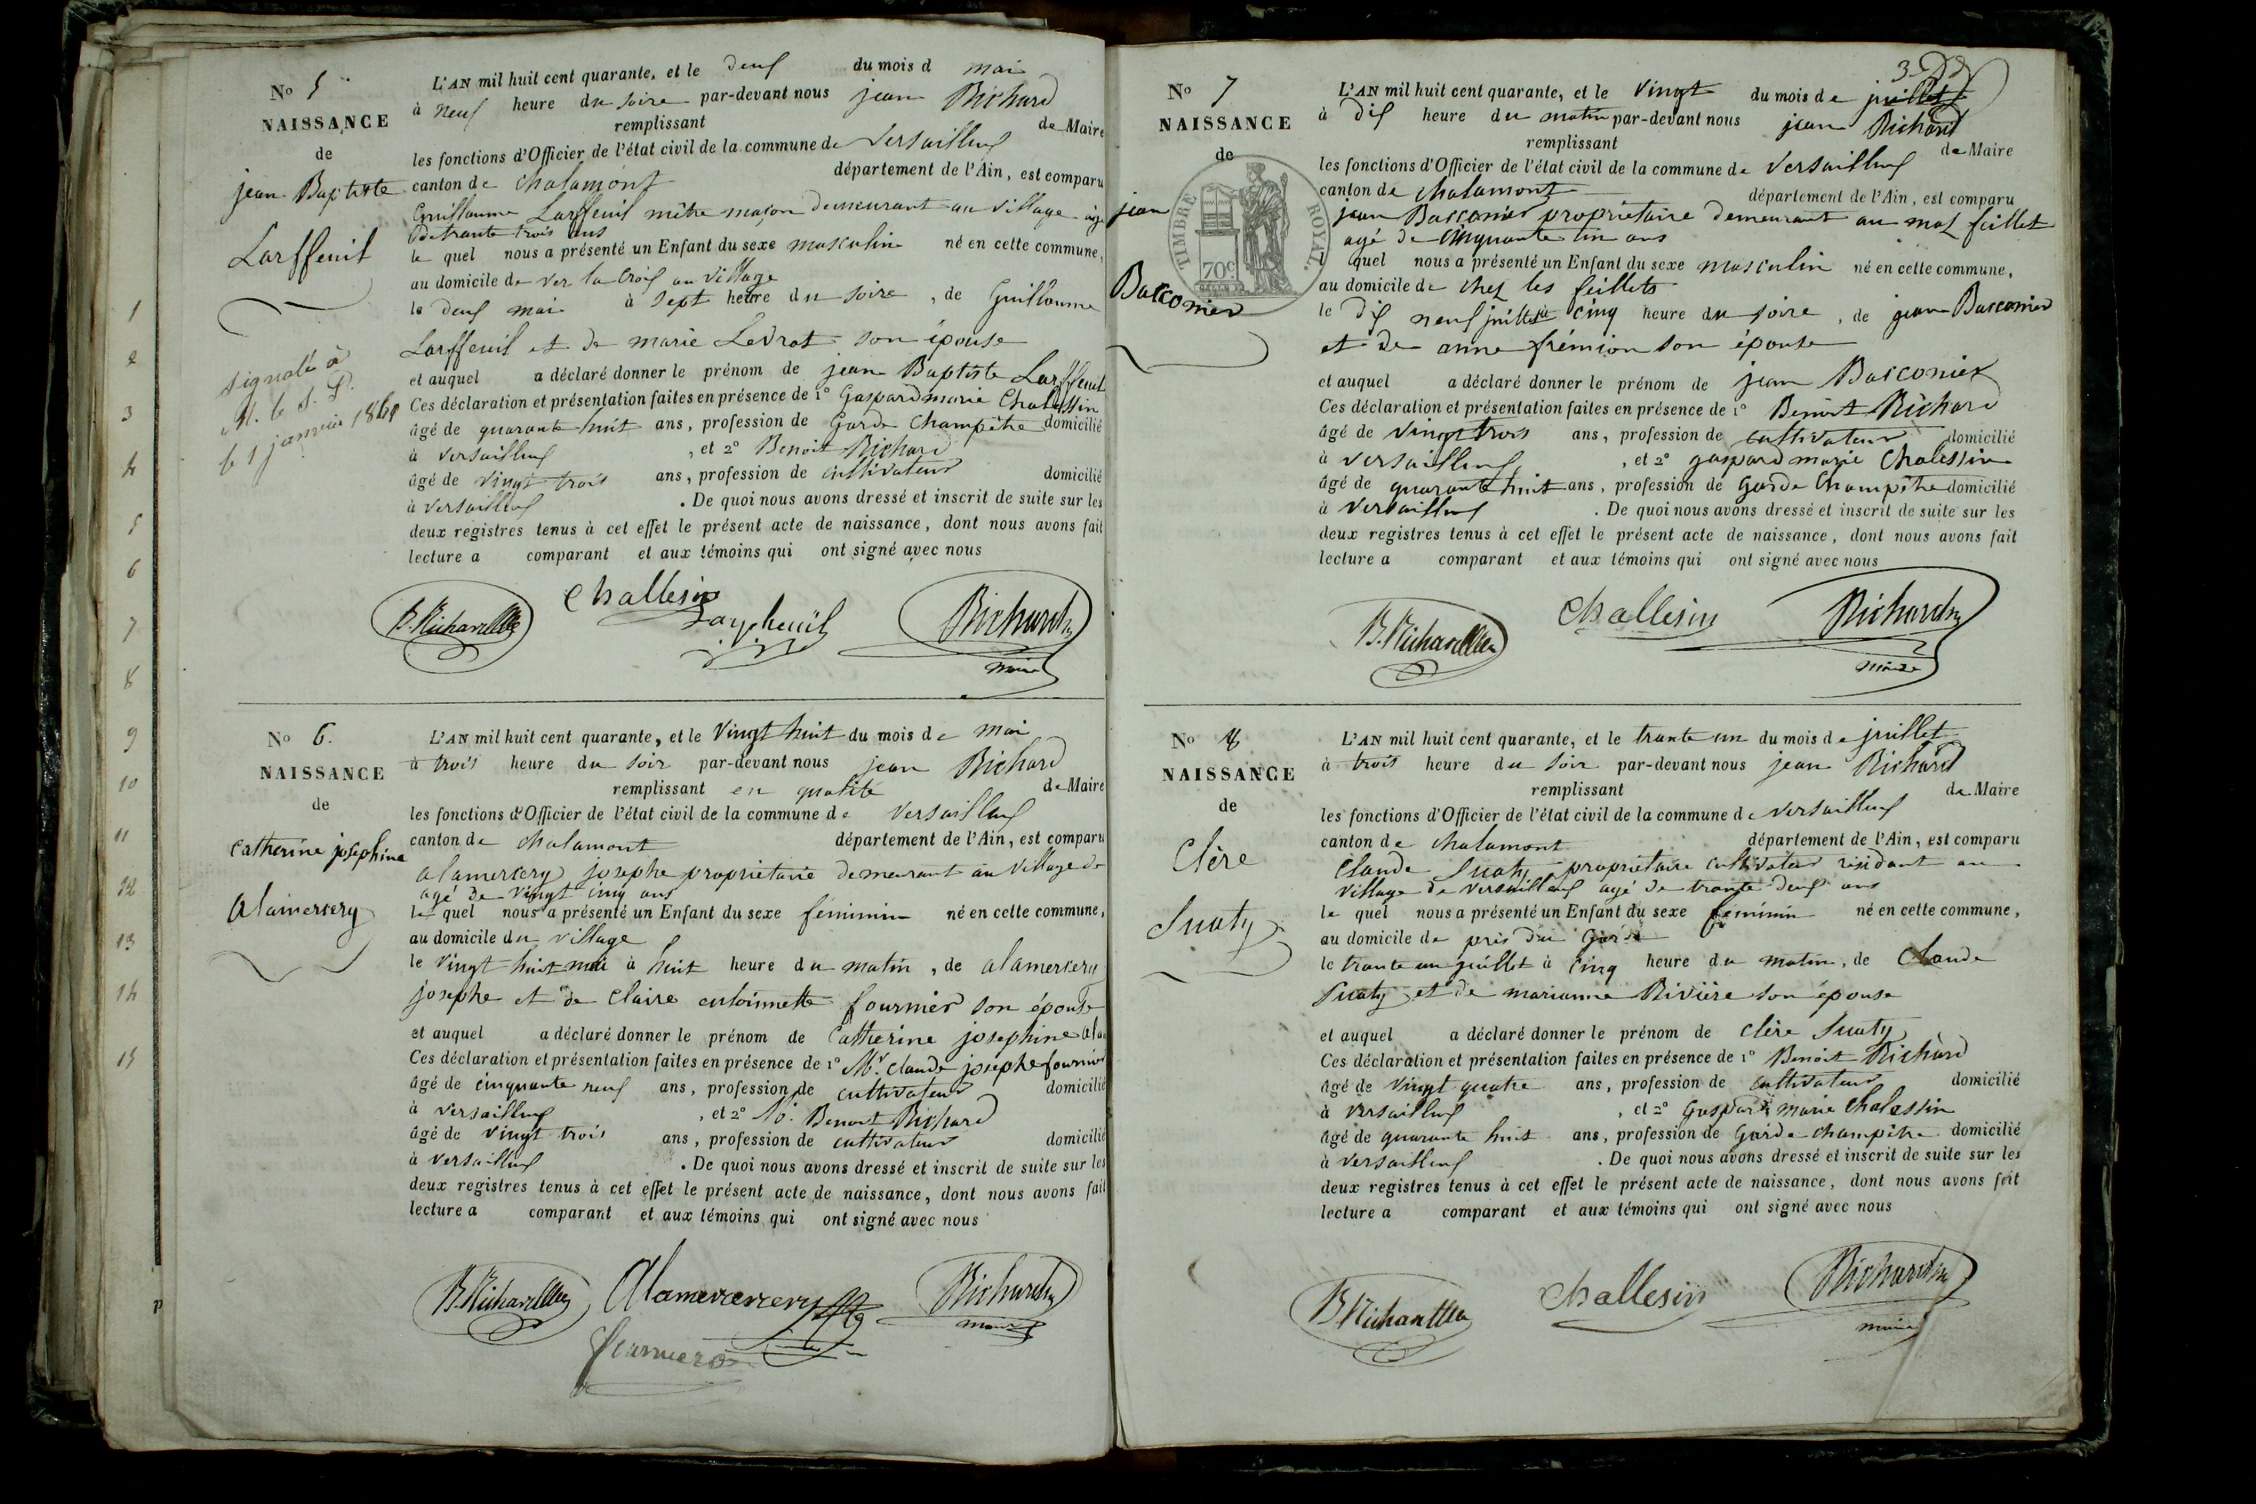 N° 5
NAISSANCE
de
jean Baptiste
Larffeuil
signalé à
le 1 janvier 1861
L'AN mil huit cent quarante, et le deux du mois d mai
à neuf heure du soire par-devant nous jean Richard
remplissant de Maire
les fonctions d'Officier de l'état civil de la commune de Versailleux
canton de chalamont département de l'Ain, est comparu
Guillaume Larffeuil mètre maçon demeurant au village agé
de trante trois ans
le quel nous a présenté un Enfant du sexe masculin né en cette commune,
au domicile de ver la croix au village
le deux mai à sept heure du soire, de Guillaume
Larffeuil et de marie Levrat son épouse
et auquel a déclaré donner le prénom de jean Baptiste Larffeuil
Ces déclaration et présentation faites en présence de 1° Gaspard marie Chalessin
âgé de quarante huit ans, profession de Garde Champêtre domicilié
à versailleux, et 2° Benoit Richard
âgé de vingt trois ans, profession de cultivateur domicilié
à versailleux. De quoi nous avons dressé et inscrit de suite sur les
deux registres tenus à cet effet le présent acte de naissance, dont nous avons fait
lecture a comparant et aux témoins qui ont signé avec nous
B. Richard Challesin Larpheuil Richard
maire
N° 6.
NAISSANCE
de
Catherine josephine
Alamercery
L'AN mil huit cent quarante, et le vingt huit du mois de mai
à trois heure du soir par-devant nous jean Richard
remplissant en qualité de Maire
les fonctions d'Officier de l'état civil de la commune de Versailleux
canton de chalamont département de l'Ain, est comparu
alamercery josephe propriétaire demeurant au village de
agé de vingt cinq ans
le quel nous a présenté un Enfant du sexe féminin né en cette commune,
au domicile du village
le vingt huit mai à huit heure du matin, de alamercery
josephe et de Claire entoinnette fournier son épouse
et auquel a déclaré donner le prénom de Catherine josephine ala
Ces déclaration et présentation faites en présence de 1° Mr. claude josephe fournier
âgé de cinquante neuf ans, profession de cultivateur domicilié
à versailleux, et 2° Benoit Richard
âgé de vingt trois ans, profession de cultivateur domicilié
à versailleux. De quoi nous avons dressé et inscrit de suite sur les
deux registres tenus à cet effet le présent acte de naissance, dont nous avons fait
lecture a comparant et aux témoins qui ont signé avec nous
B. Richard Alamercery Richard
maire
fournier
1
2
3
4
5
6
7
8
9
10
11
12
13
14
15
N° 7
NAISSANCE
de
jean
Basconier
TIMBRE ROYAL.
70c
L'AN mil huit cent quarante, et le vingt du mois de juillet
à dix heure du matin par-devant nous jean Richard
remplissant de Maire
les fonctions d'Officier de l'état civil de la commune de Versailleux
canton de chalamont département de l'Ain, est comparu
jean Basconier propriétaire demeurant au mas feillet
agé de cinquante un ans
quel nous a présenté un Enfant du sexe masculin né en cette commune,
au domicile de chez les feillets
le dix neuf juillet à cinq heure du soire, de jean Basconier
et de anne frémion son épouse
et auquel a déclaré donner le prénom de jean Basconier
Ces déclaration et présentation faites en présence de 1° Benoit Richard
âgé de vingt trois ans, profession de cultivateur domicilié
à versailleux, et 2° gaspard marie Chalessin
âgé de quarante huit ans, profession de Garde Champêtre domicilié
à versailleux. De quoi nous avons dressé et inscrit de suite sur les
deux registres tenus à cet effet le présent acte de naissance, dont nous avons fait
lecture a comparant et aux témoins qui ont signé avec nous
B. Richard Challesin Richard
maire
N° 8
NAISSANCE
de
Clère
Suaty
L'AN mil huit cent quarante, et le trante un du mois de juillet
à trois heure du soir par-devant nous jean Richard
remplissant de Maire
les fonctions d'Officier de l'état civil de la commune de versailleux
canton de chalamont département de l'Ain, est comparu
Claude Suaty propriétaire cultivateur résidant au
village de versailleux agé de trante deux ans
le quel nous a présenté un Enfant du sexe féminin né en cette commune,
au domicile de
le trante un juillet à cinq heure du matin, de Claude
Suaty et de marianne Rivière son épouse
et auquel a déclaré donner le prénom de clère Suaty
Ces déclaration et présentation faites en présence de 1° Benoit Richard
âgé de vingt quatre ans, profession de cultivateur domicilié
à versailleux, et 2° Gaspard marie Chalessin
âgé de quarante huit ans, profession de Garde champêtre domicilié
à versailleux. De quoi nous avons dressé et inscrit de suite sur les
deux registres tenus à cet effet le présent acte de naissance, dont nous avons fait
lecture a comparant et aux témoins qui ont signé avec nous
B. Richard Challesin Richard
maire